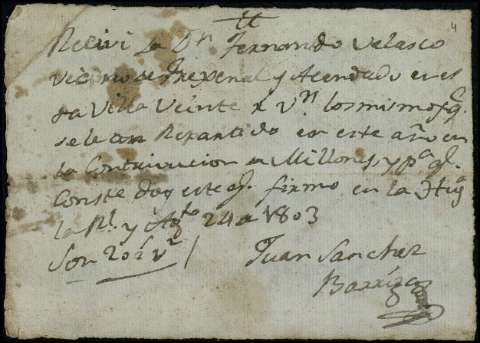 4
Recivi de Dn Fernando Velasco
vecino de Frexenal y Acendado en es
ta Villa Veinte rs Vn los mismos q.
se le an Repartido en este año en
la Contrivucion de Millones y pa q.
Conste doy este q. firmo en la Higa
la Rl. y Agto 24 de 1803
Son 20 rs vn
Juan Sanchez
Barriga